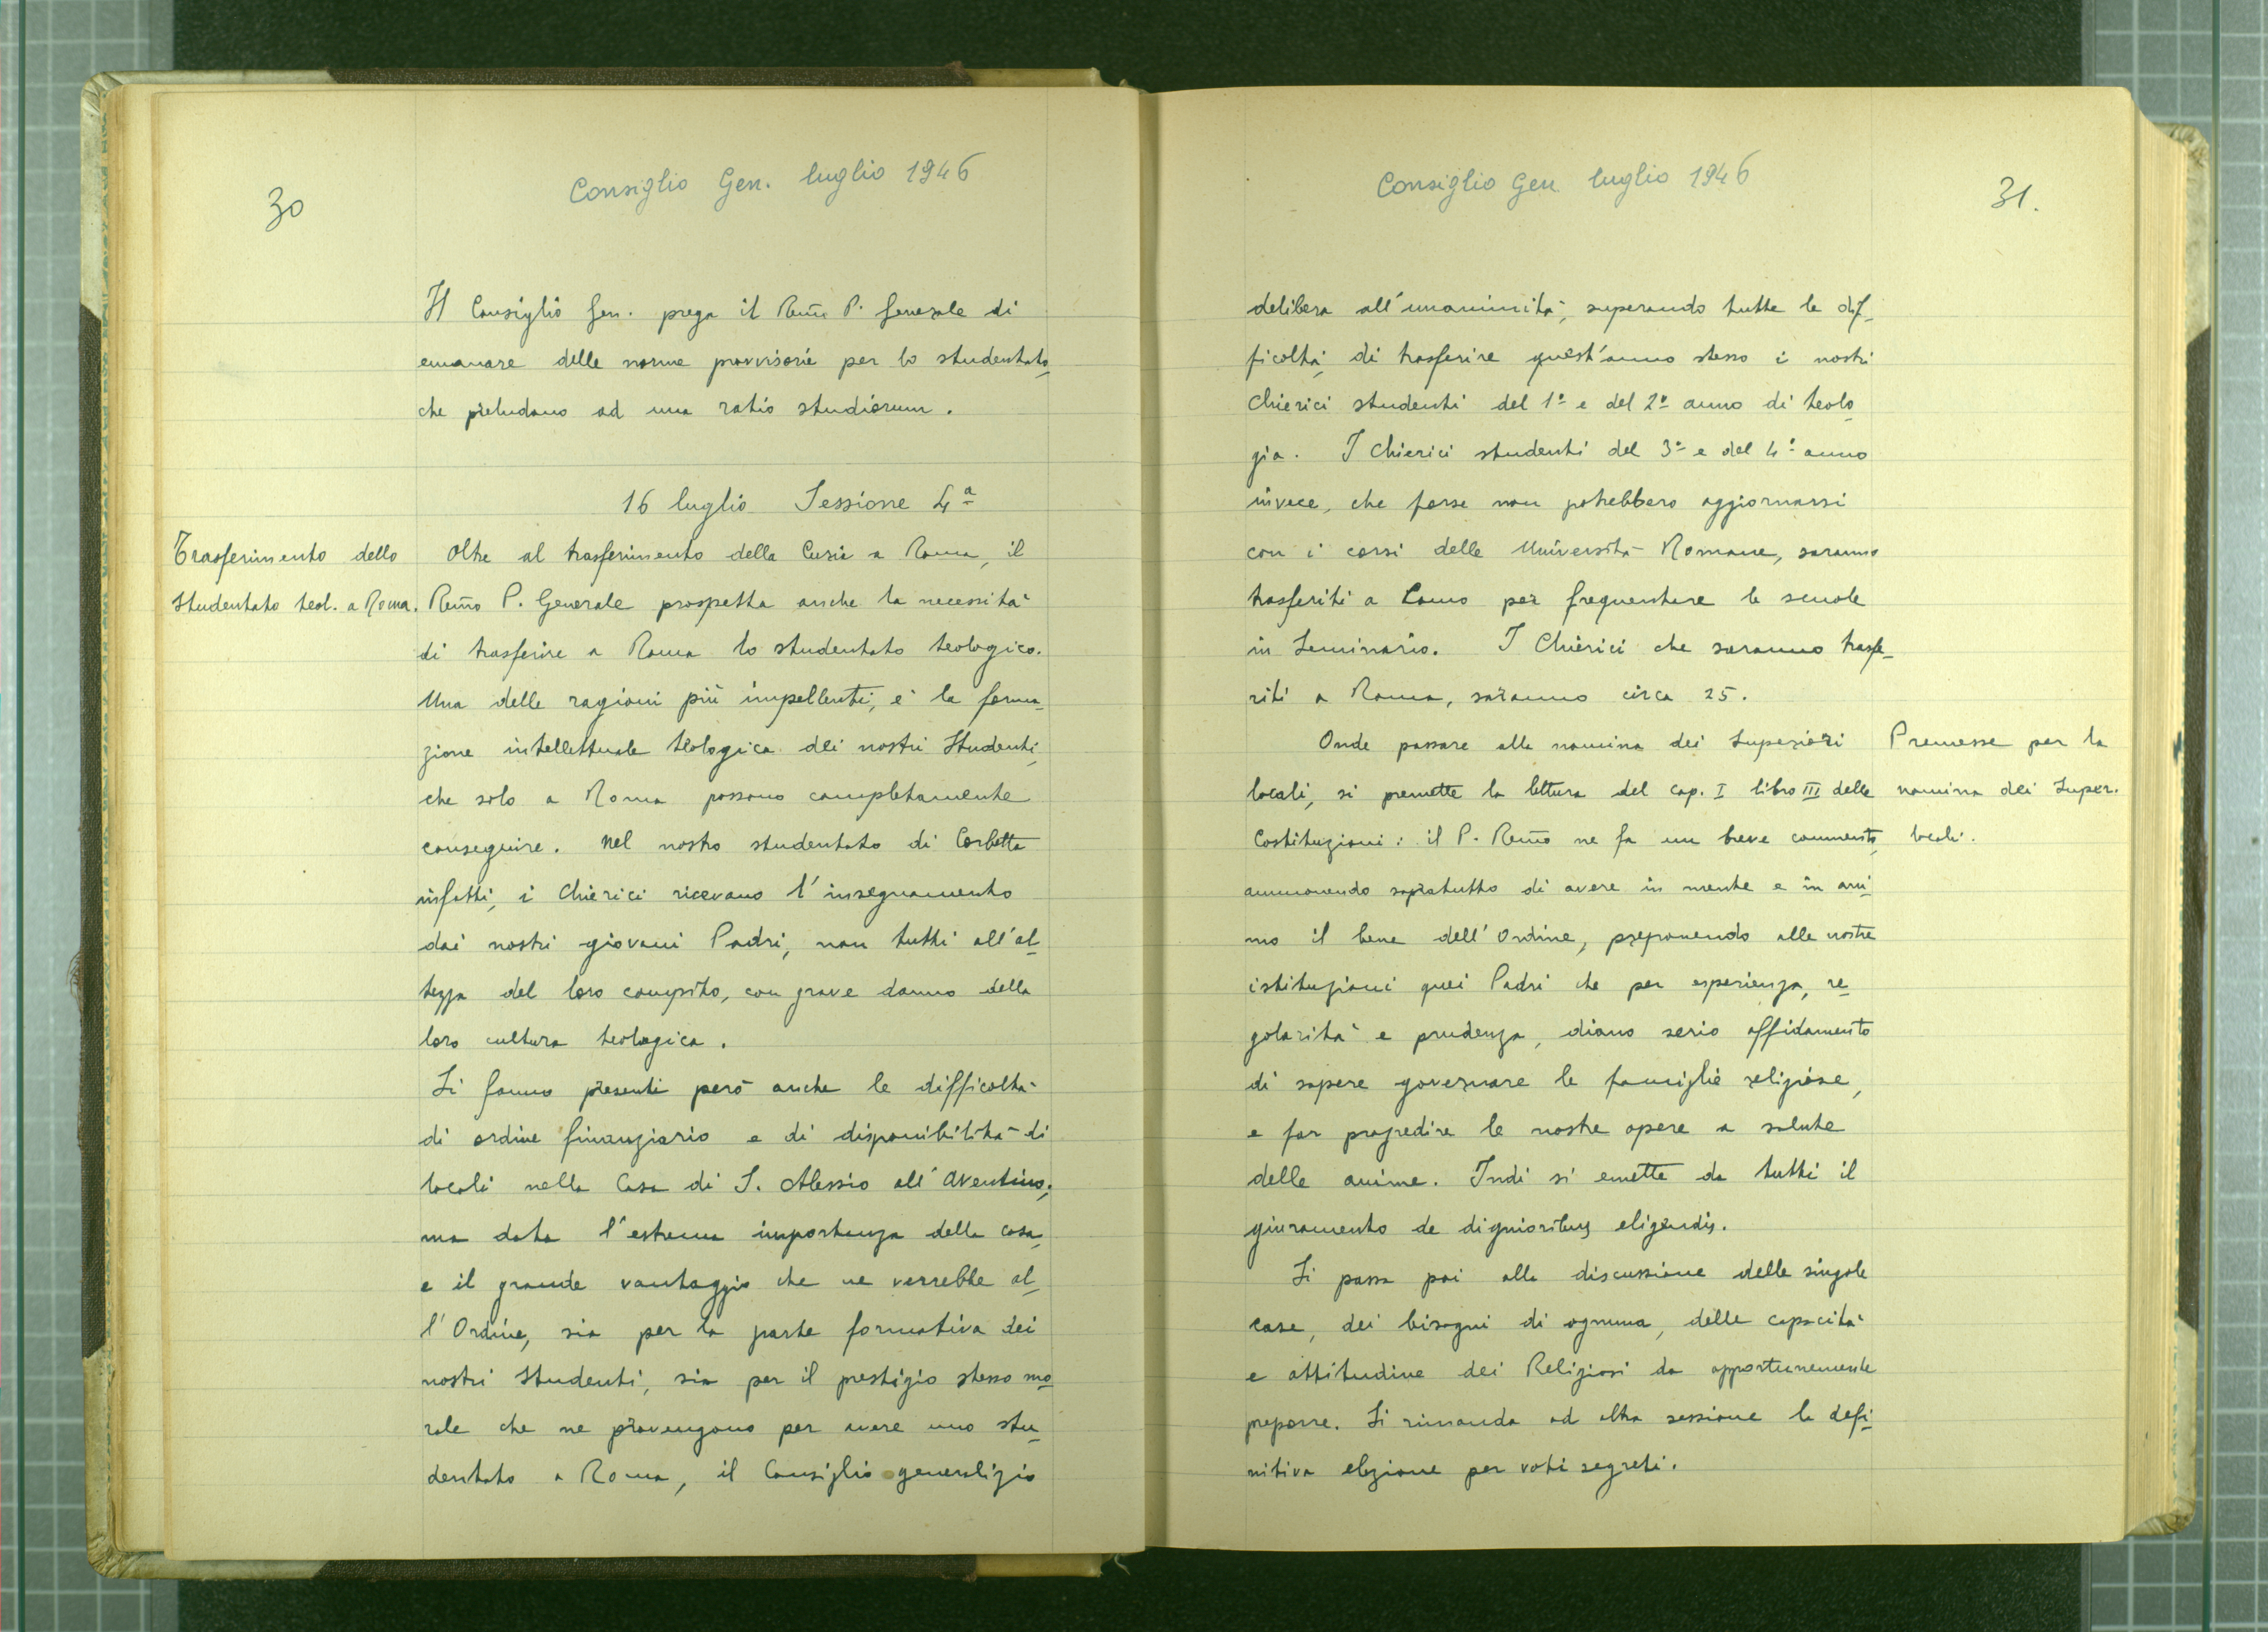 30
Consiglio Gen. luglio 1946
Il Consiglio Gen. prega il Rem̃o P. Generale di
emanare delle norme provvisorie per lo studentato,
che preludano ad una ratio studiorum.
16 luglio Sessione 4ª
Trasferimento dello
Studentato teol. a Roma.
Oltre al trasferimento della Curia a Roma, il
Rem̃o P. Generale prospetta anche la necessità
di trasferire a Roma lo studentato teologico.
Una delle ragioni più impellenti, è la forma-
zione intellettuale teologica dei nostri Studenti,
che solo a Roma possono completamente
conseguire. Nel nostro studentato di Corbetta
infatti, i Chierici ricevano l'insegnamento
dai nostri giovani Padri, non tutti all'al-
tezza del loro compito, con grave danno della
loro cultura teologica.
Si fanno presenti però anche le difficoltà
di ordine finanziario e di disponibilità di
locali nella Casa di S. Alessio all'Aventino;
ma data l'estrema importanza della cosa,
e il grande vantaggio che ne verrebbe al-
l'Ordine, sia per la parte formativa dei
nostri Studenti, sia per il prestigio stesso mo-
rale che ne provengono per avere uno stu-
dentato a Roma, il Consiglio generalizio
Consiglio Gen. luglio 1946
31.
delibera all'unanimità, superando tutte le dif-
ficoltà, di trasferire quest'anno stesso i nostri
Chierici studenti del 1º e del 2º anno di teolo-
gia. I Chierici studenti del 3º e del 4º anno
invece, che forse non potrebbero aggiornarsi
con i corsi delle Università Romane, saranno
trasferiti a Como per frequentare le scuole
in Seminario. I Chierici che saranno trasfe-
riti a Roma, saranno circa 25.
Onde passare alla nomina dei Superiori
locali, si premette la lettura del cap. I libro III delle
Costituzioni: il P. Rem̃o ne fa un breve commento,
ammonendo sopratutto di avere in mente e in ani-
mo il bene dell'Ordine, preponendo alle nostre
istituzioni quei Padri che per esperienza, re-
golarità e prudenza, diano serio affidamento
di sapere governare le famiglie religiose,
e far progredire le nostre opere a salute
delle anime. Indi si emette da tutti il
giuramento de dignioribus eligendis.
Si passa poi alla discussione delle singole
case, dei bisogni di ognuna, delle capacità
e attitudine dei Religiosi da opportunemente
preporre. Si rimanda ad altra sessione la defi-
nitiva elezione per voti segreti.
Premesse per la
nomina dei Super.
locali.